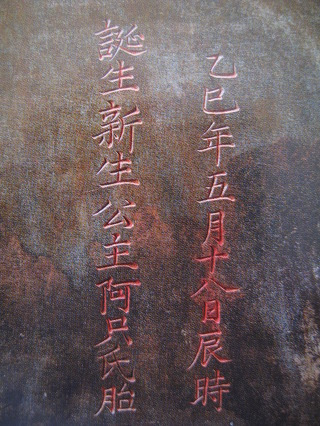 乙巳年五月十八日辰時
誕生新生公主阿只氏胎